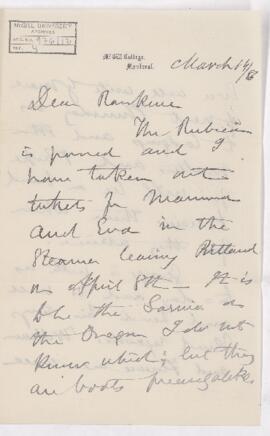 McGILL UNIVERSITY
ARCHIVES
ACC. NO. 976/13
REF. 4
McGill College,
Montreal.
March 14/
Dear Rankine
The Rubicon
is passed and I
have taken out
tickets for Mamma
and Eva in the
Steamer leaving Portland
on April 8th – It is
to be the Sarnia or
the Oregon I do not
know which; but they
are boats